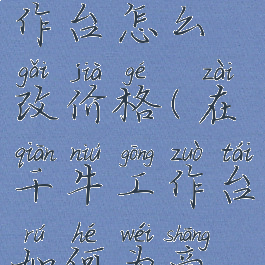 作台怎么
gǎi jià gé zài
改价格(在
qiān niú gōng zuò tái
千牛工作台
rú hé wéi shāng
如何为商